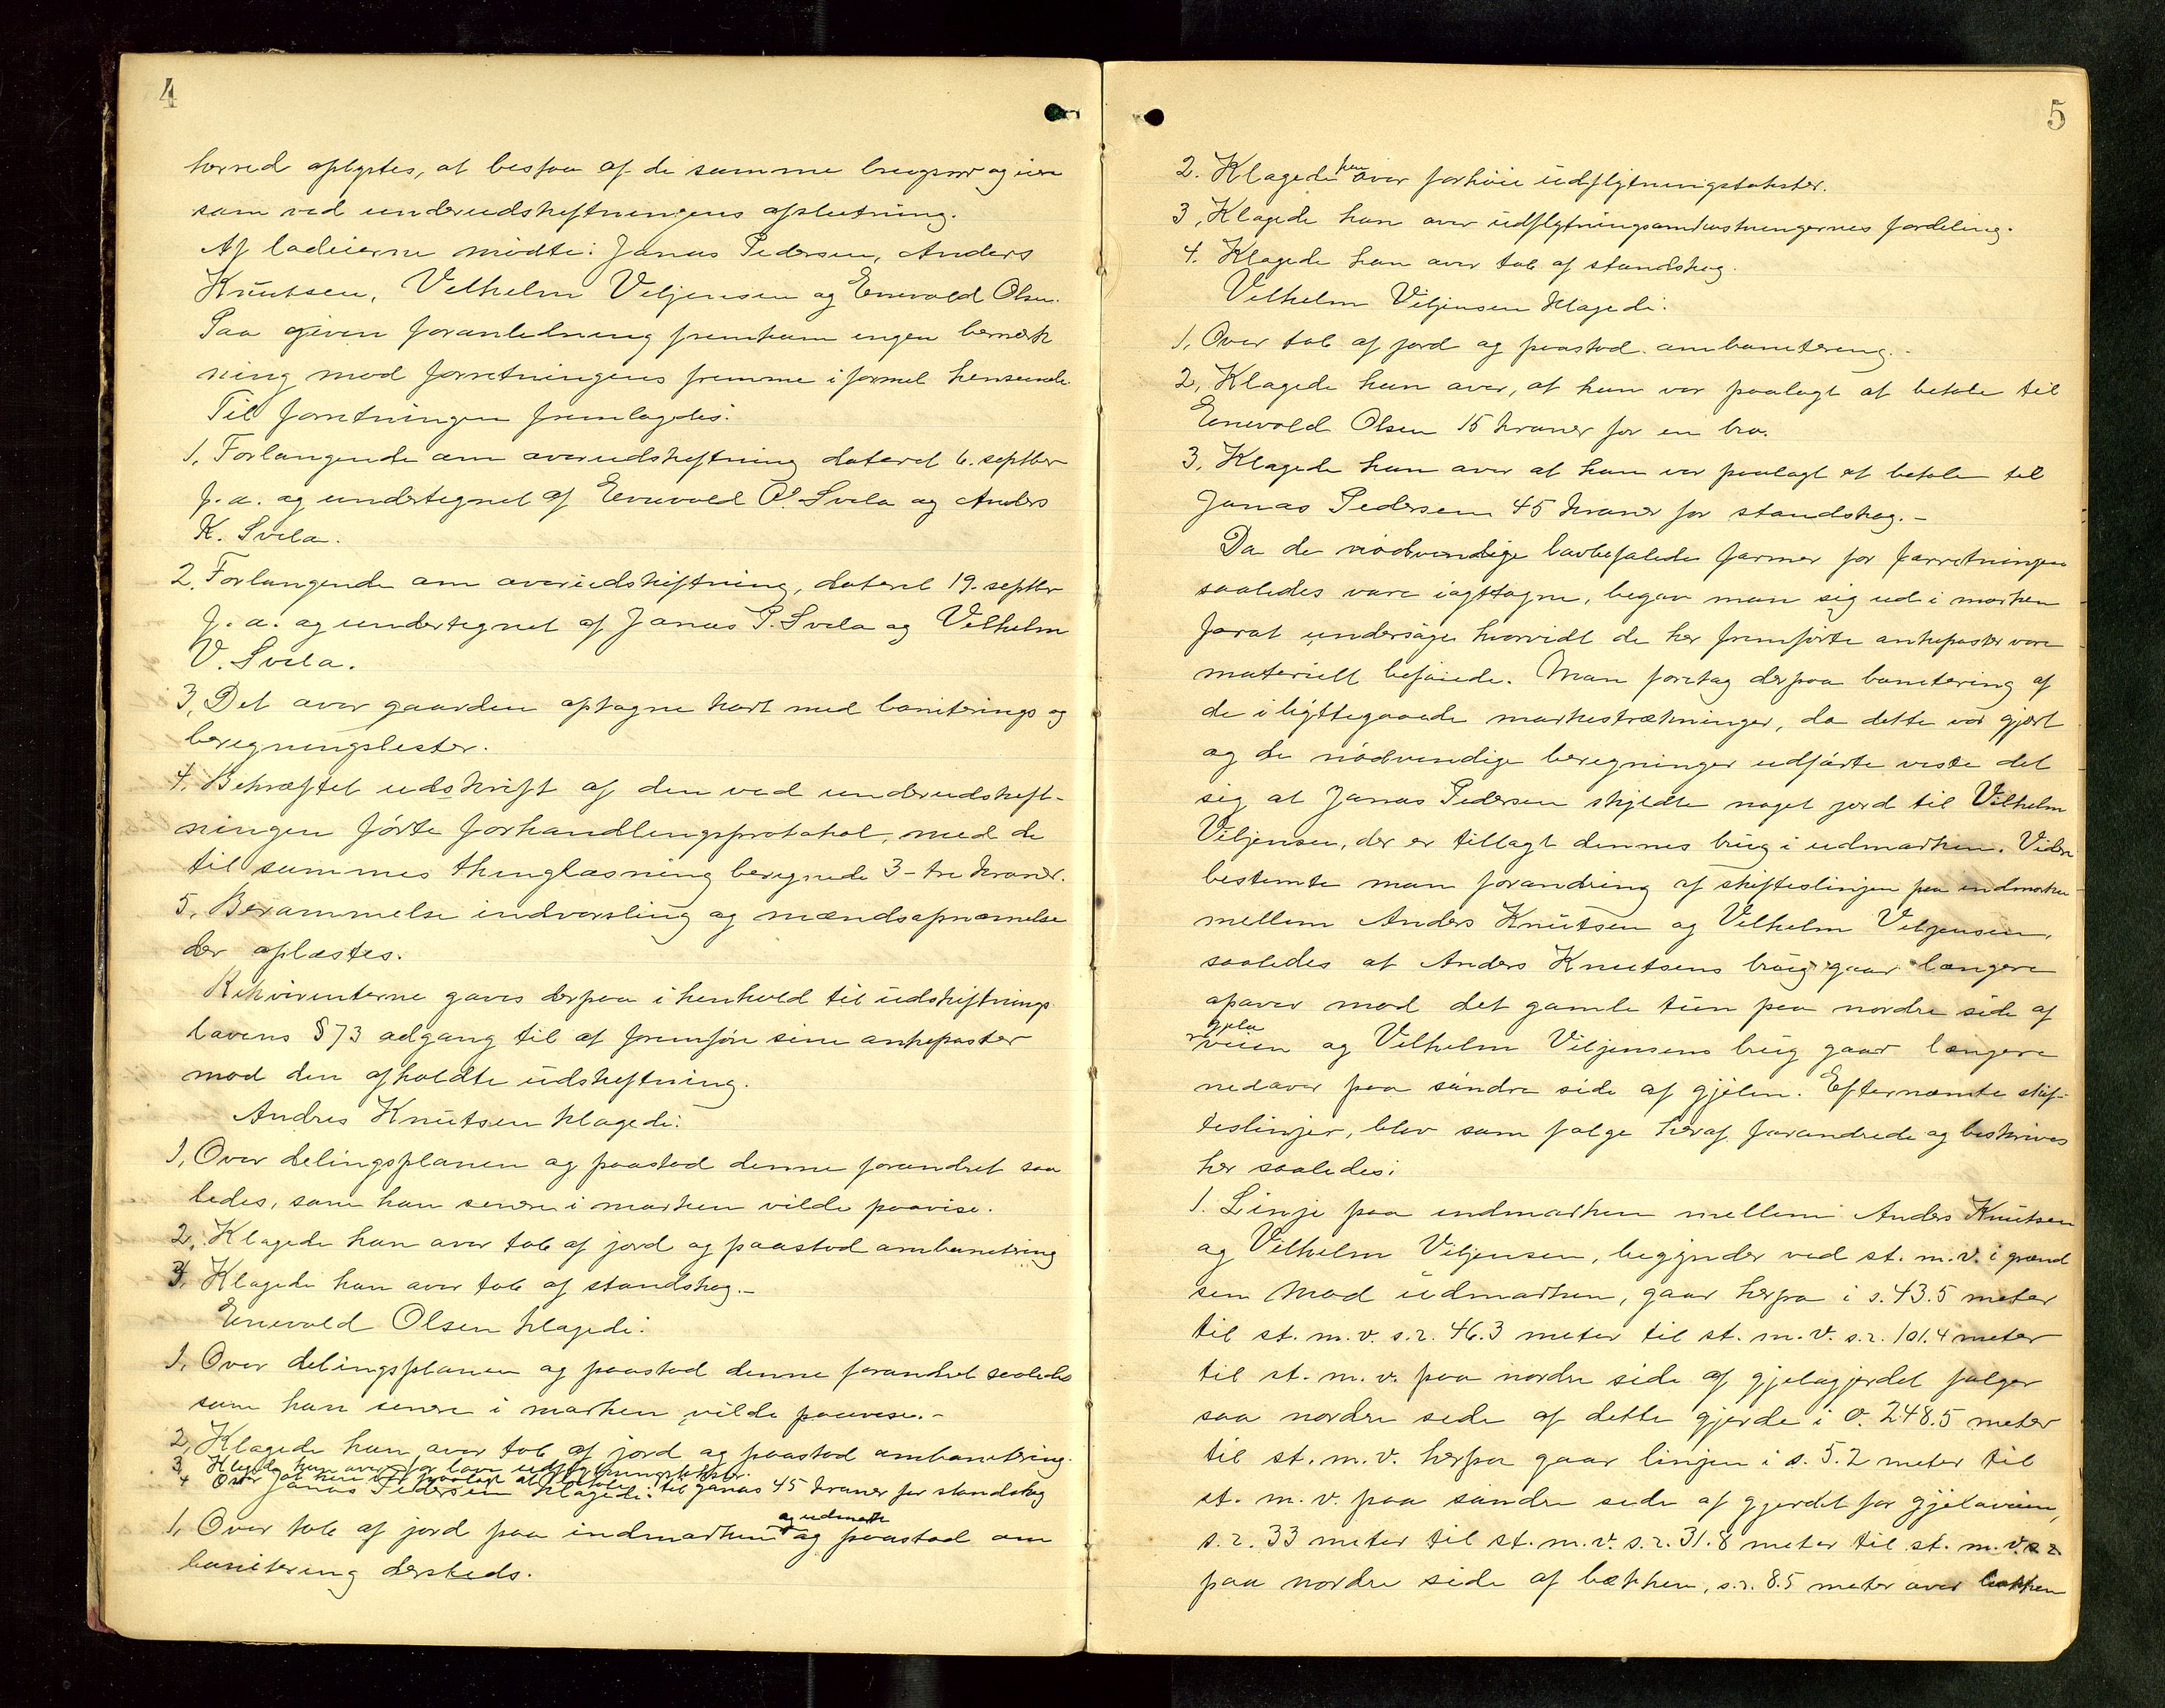 4
herred oplystes, at bestaa af de samme brugsnr og eiere
som ved underudskiftningens afslutning.
Af lodeierne mødte: Jonas Pedersen, Anders
Knutsen, Velhelm Veljensen og Enevold Olsen.
Paa given foranledning fremkom ingen bemærk
ning mod forretningens fremme i formel henseende.
Til forretningen fremlagdes:
1, Forlangende om overudskiftning dateret 6. septbr
f. a. og undertegnet af Enevold O. Svela og Anders
K. Svela.
2. Forlangende om overudskiftning, dateret 19. septbr
f. a. og undertegnet af Jonas P. Svela og Velhelm
V. Svela.
3, Det over gaarden optagne kart med boniterings og
beregningslister.
4, Bekræftet udskrift af den ved underudskift-
ningen førte forhandlingsprotokol, med de
til sammes thinglæsning beregnede 3 - tre kroner.
5, Berammelse indvarsling og mændsopnævnelse
der oplæstes.
Rekvirenterne gaves derpaa i henhold til udskiftnings
lovens § 73 adgang til at fremføre sine ankeposter
mod den afholdte udskiftning.
Andres Knutsen klagede:
1, Over delingsplanen og paastod denne forandret saa
ledes, som han senere i marken vilde paavise.
2, Klagede han over tab af jord og paastod ombonitering
3, Klagede han over tab af standskog. -
Enevold Olsen klagede:
1, Over delingsplanen og paastod denne forandret saaledes
som han senere i marken vilde paavise. -
2, Klagede han over tab af jord og paastod ombonitering.
3, Klagede han over for lave udflytningstakster.
4 Over at han var paalagt at betale til Jonas 45 kroner for standskog
Jonas Pedersen klagede:
1, Over tab af jord paa indmarken og udmark og paastod om
bonitering dersteds.
5
2. Klagede han over forhøie udflytningstakster.
3, Klagede han over udflytningsomkostningernes fordeling.
4. Klagede han over tab af standskog.
Velhelm Veljensen klagede:
1, Over tab af jord og paastod ombonitering. -
2, Klagede han over, at han var paalagt at betale til
Enevold Olsen 15 kroner for en bro.
3, Klagede han over at han var paalagt at betale til
Jonas Pedersen 45 kroner for standskog. -
Da de nødvendige lovbefalede former for forretningen
saaledes vare iagttagne, begav man sig ud i marken
forat undersøge hvorvidt de her fremførte ankeposter vare
materielt beføiede. Man foretog derpaa bonitering af
de i byttegaaede markestrækninger, da dette var gjort
og de nødvendige beregninger udførte viste det
sig at Jonas Pedersen skyldte noget jord til Vilhelm
Viljensen, der er tillagt dennes brug i udmarken. Videre
bestemte man forandring af skifteslinjen paa indmarken
mellem Anders Knutsen og Velhelm Veljensen,
saaledes at Anders Knutsens brug gaar længere
opover mod det gamle tun paa nordre side af
gjelaveien og Velhelm Veljensens brug gaar længere
nedover paa søndre side af gjelen. Efternævnte skif-
teslinjer, blev som følge heraf forandrede og beskrives
her saaledes:
1. Linje paa indmarken mellem Anders Knutsen
og Vilhelm Viljensen, begynder ved st. m. v. i grænd
sen mod udmarken, gaar herpa i s. 43.5 meter
til st. m. v. s. r. 46.3 meter til st. m. v. s. r. 101.4 meter
til st. m. v. paa nordre side af gjelagjerdet følger
saa nordre side af dette gjerde i o. 248.5 meter
til st. m. v. herpa gaar linjen i s. 5.2 meter til
st. m. v. paa søndre side af gjerdet for gjelaveien,
s. r. 33 meter til st. m. v. s. r. 31.8 meter til st. m. v. s r
paa nordre side af bækken, s. r. 8.5 meter over bækken